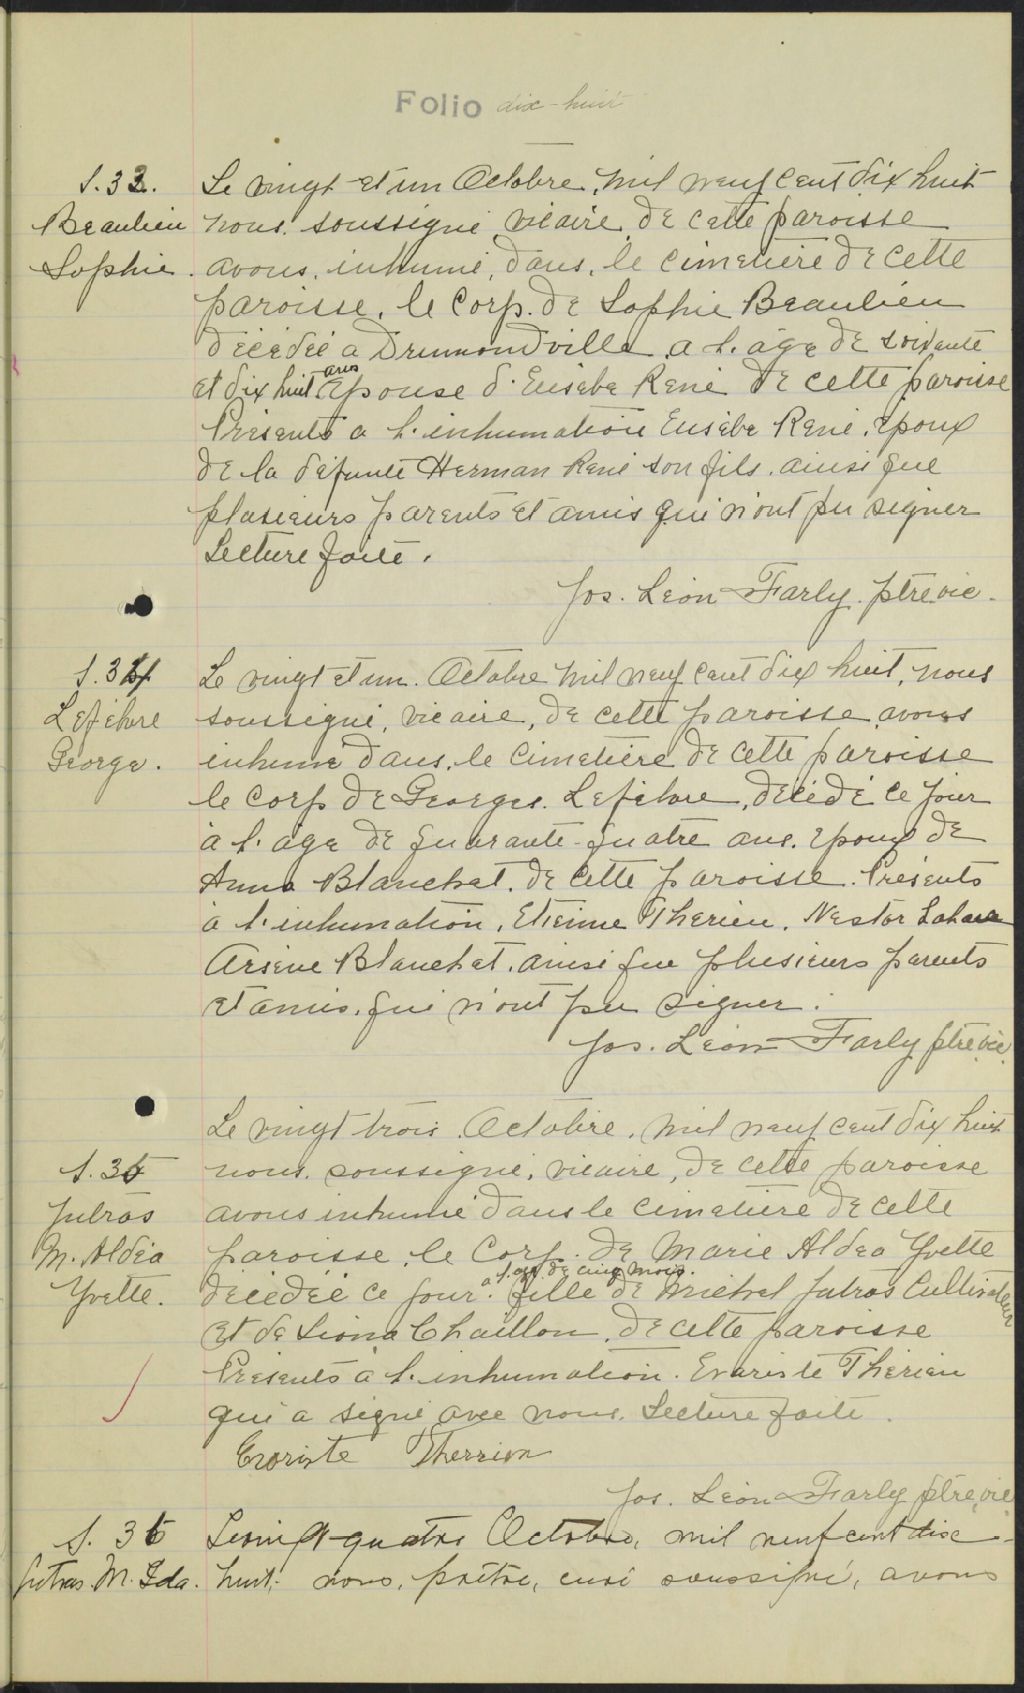 Folio dix-huit
S. 33.
Beaulieu
Sophie.
Le vingt et un Octobre, mil neuf cent dix huit
nous soussigné, vicaire, de cette paroisse
avons, inhumé, dans, le cimetière de cette
paroisse, le corp. de Sophie Beaulieu
décédée a Drummondville, a l'age de soixante
et dix huit ans épouse d'Eusèbe René de cette paroisse
Présents a l'inhumation Eusèbe René, époux
de la défunte Herman René son fils, ainsi que
plusieurs parents et amis qui n'ont pu signer
Lecture faite.
Jos. Léon Farly ptre vic.
S. 34
Lefebvre
George.
Le vingt et un Octobre mil neuf cent dix huit, nous
soussigné, vicaire, de cette paroisse avons
inhumé dans, le cimetière de cette paroisse
le corp de Georges Lefebvre, décédé ce jour
à l'age de quarante-quatre ans, époux de
Anna Blanchat, de cette paroisse. Présents
à l'inhumation, Etienne Therien, Nestor
Arsène Blanchat, ainsi que plusieurs parents
et amis, qui n'ont pu signer.
Jos. Léon Farly ptre vic.
S. 35
Jutras
M. Aldéa
Yvette.
Le vingt trois Octobre, mil neuf cent dix huit
nous, soussigné, vicaire, de cette paroisse
avons inhumé dans le cimetière de cette
paroisse, le Corp. de Marie Aldea Yvette
décédée ce jour. a l'age de cinq mois. fille de Michel Jutras Cultivateur
et de Liona Chaillon, de cette paroisse
Présents à l'inhumation. Evariste Thérien
qui a signé avec nous. Lecture faite.
Evariste Therrien
Jos. Léon Farly ptre vic
S. 36
Jutras M. Ida.
Le vingt-quatre Octobre, mil neuf cent dix-
huit, nous, prêtre, curé soussigné, avons